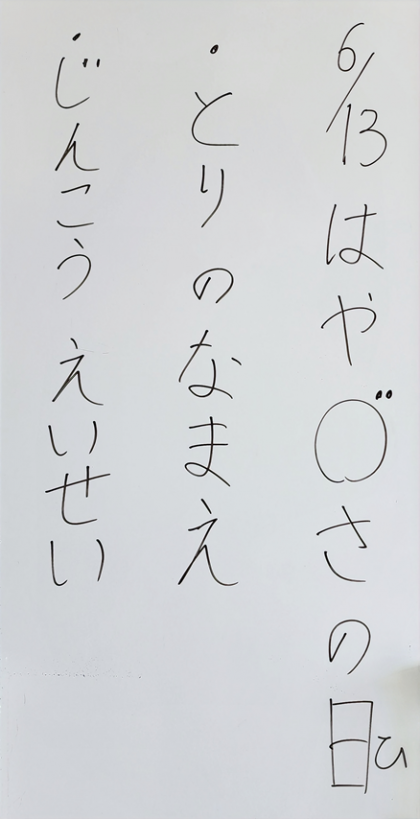 6/13はや◯゛さの日ひ
・とりのなまえ
・じんこうえいせい